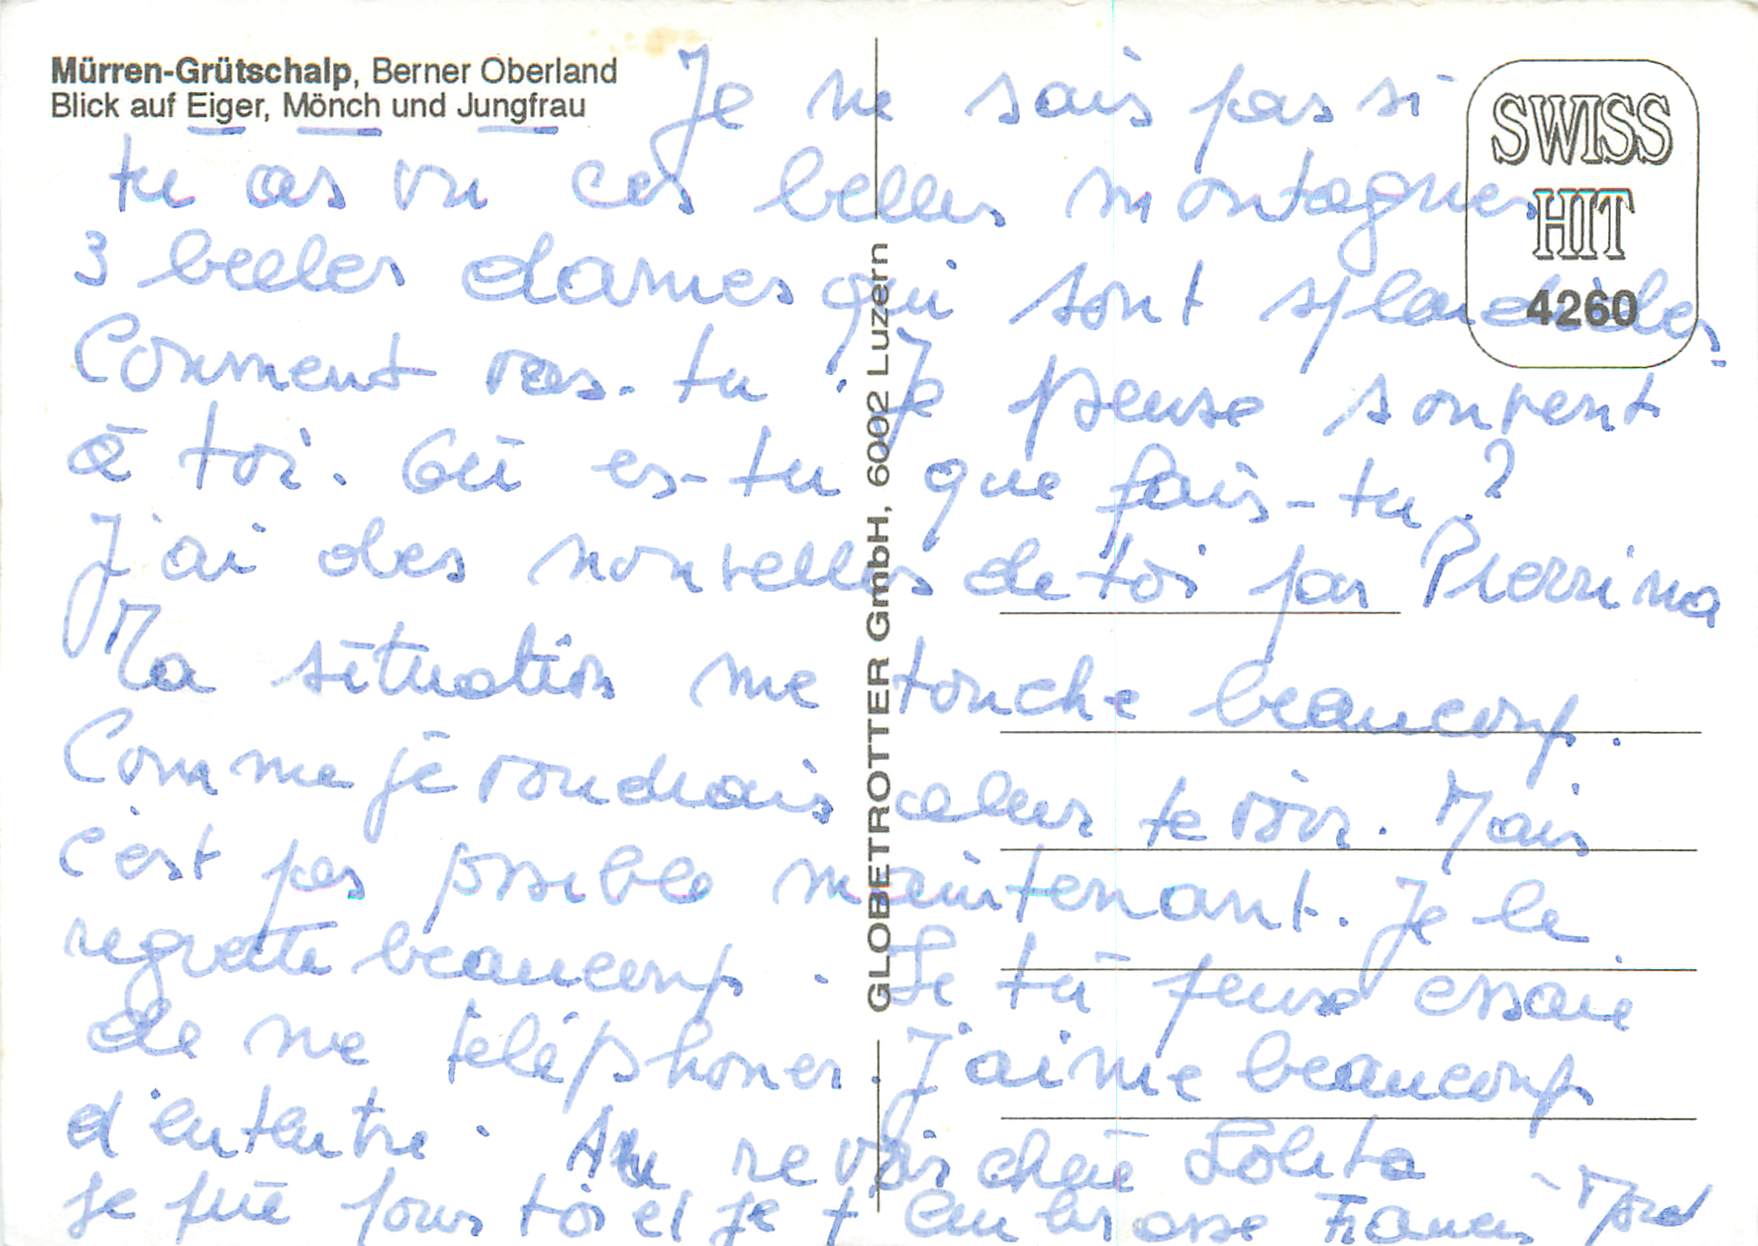 Mürren-Grütschalp, Berner Oberland
Blick auf Eiger, Mönch und Jungfrau
SWISS
HIT
4260
GLOBETROTTER GmbH, 6002 Luzern
Je ne sais pas si
tu as vu ces belles montagnes
3 belles dames qui sont splendides.
Comment vas-tu. Je pense souvent
à toi. Où es-tu que fais-tu ?
J'ai des nouvelles de toi par Pierrina
Ta situation me touche beaucoup.
Comme je voudrais aller te voir. Mais
c'est pas possible maintenant. Je le
regrette beaucoup. Se tu peux essaie
de me téléphoner. J'aime beaucoup
d'entantre. Au revoir chère Lolita
je prie pour toi et je t'embrasse